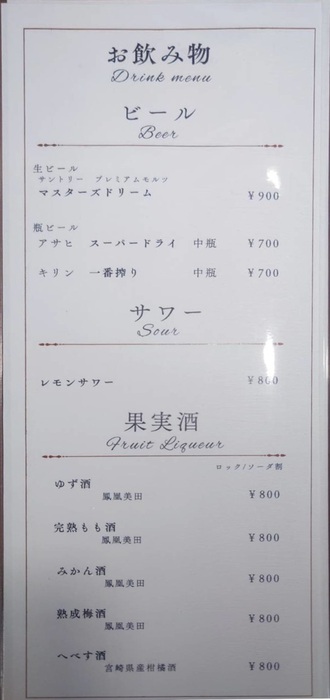 お飲み物
Drink menu
ビール
Beer
生ビール
サントリー プレミアムモルツ
マスターズドリーム ¥900
瓶ビール
アサヒ スーパードライ 中瓶 ¥700
キリン 一番搾り 中瓶 ¥700
サワー
Sour
レモンサワー ¥800
果実酒
Fruit Liqueur
ロック/ソーダ割
ゆず酒 ¥800
鳳凰美田
完熟もも酒 ¥800
鳳凰美田
みかん酒 ¥800
鳳凰美田
熟成梅酒 ¥800
鳳凰美田
へべす酒 ¥800
宮崎県産柑橘酒